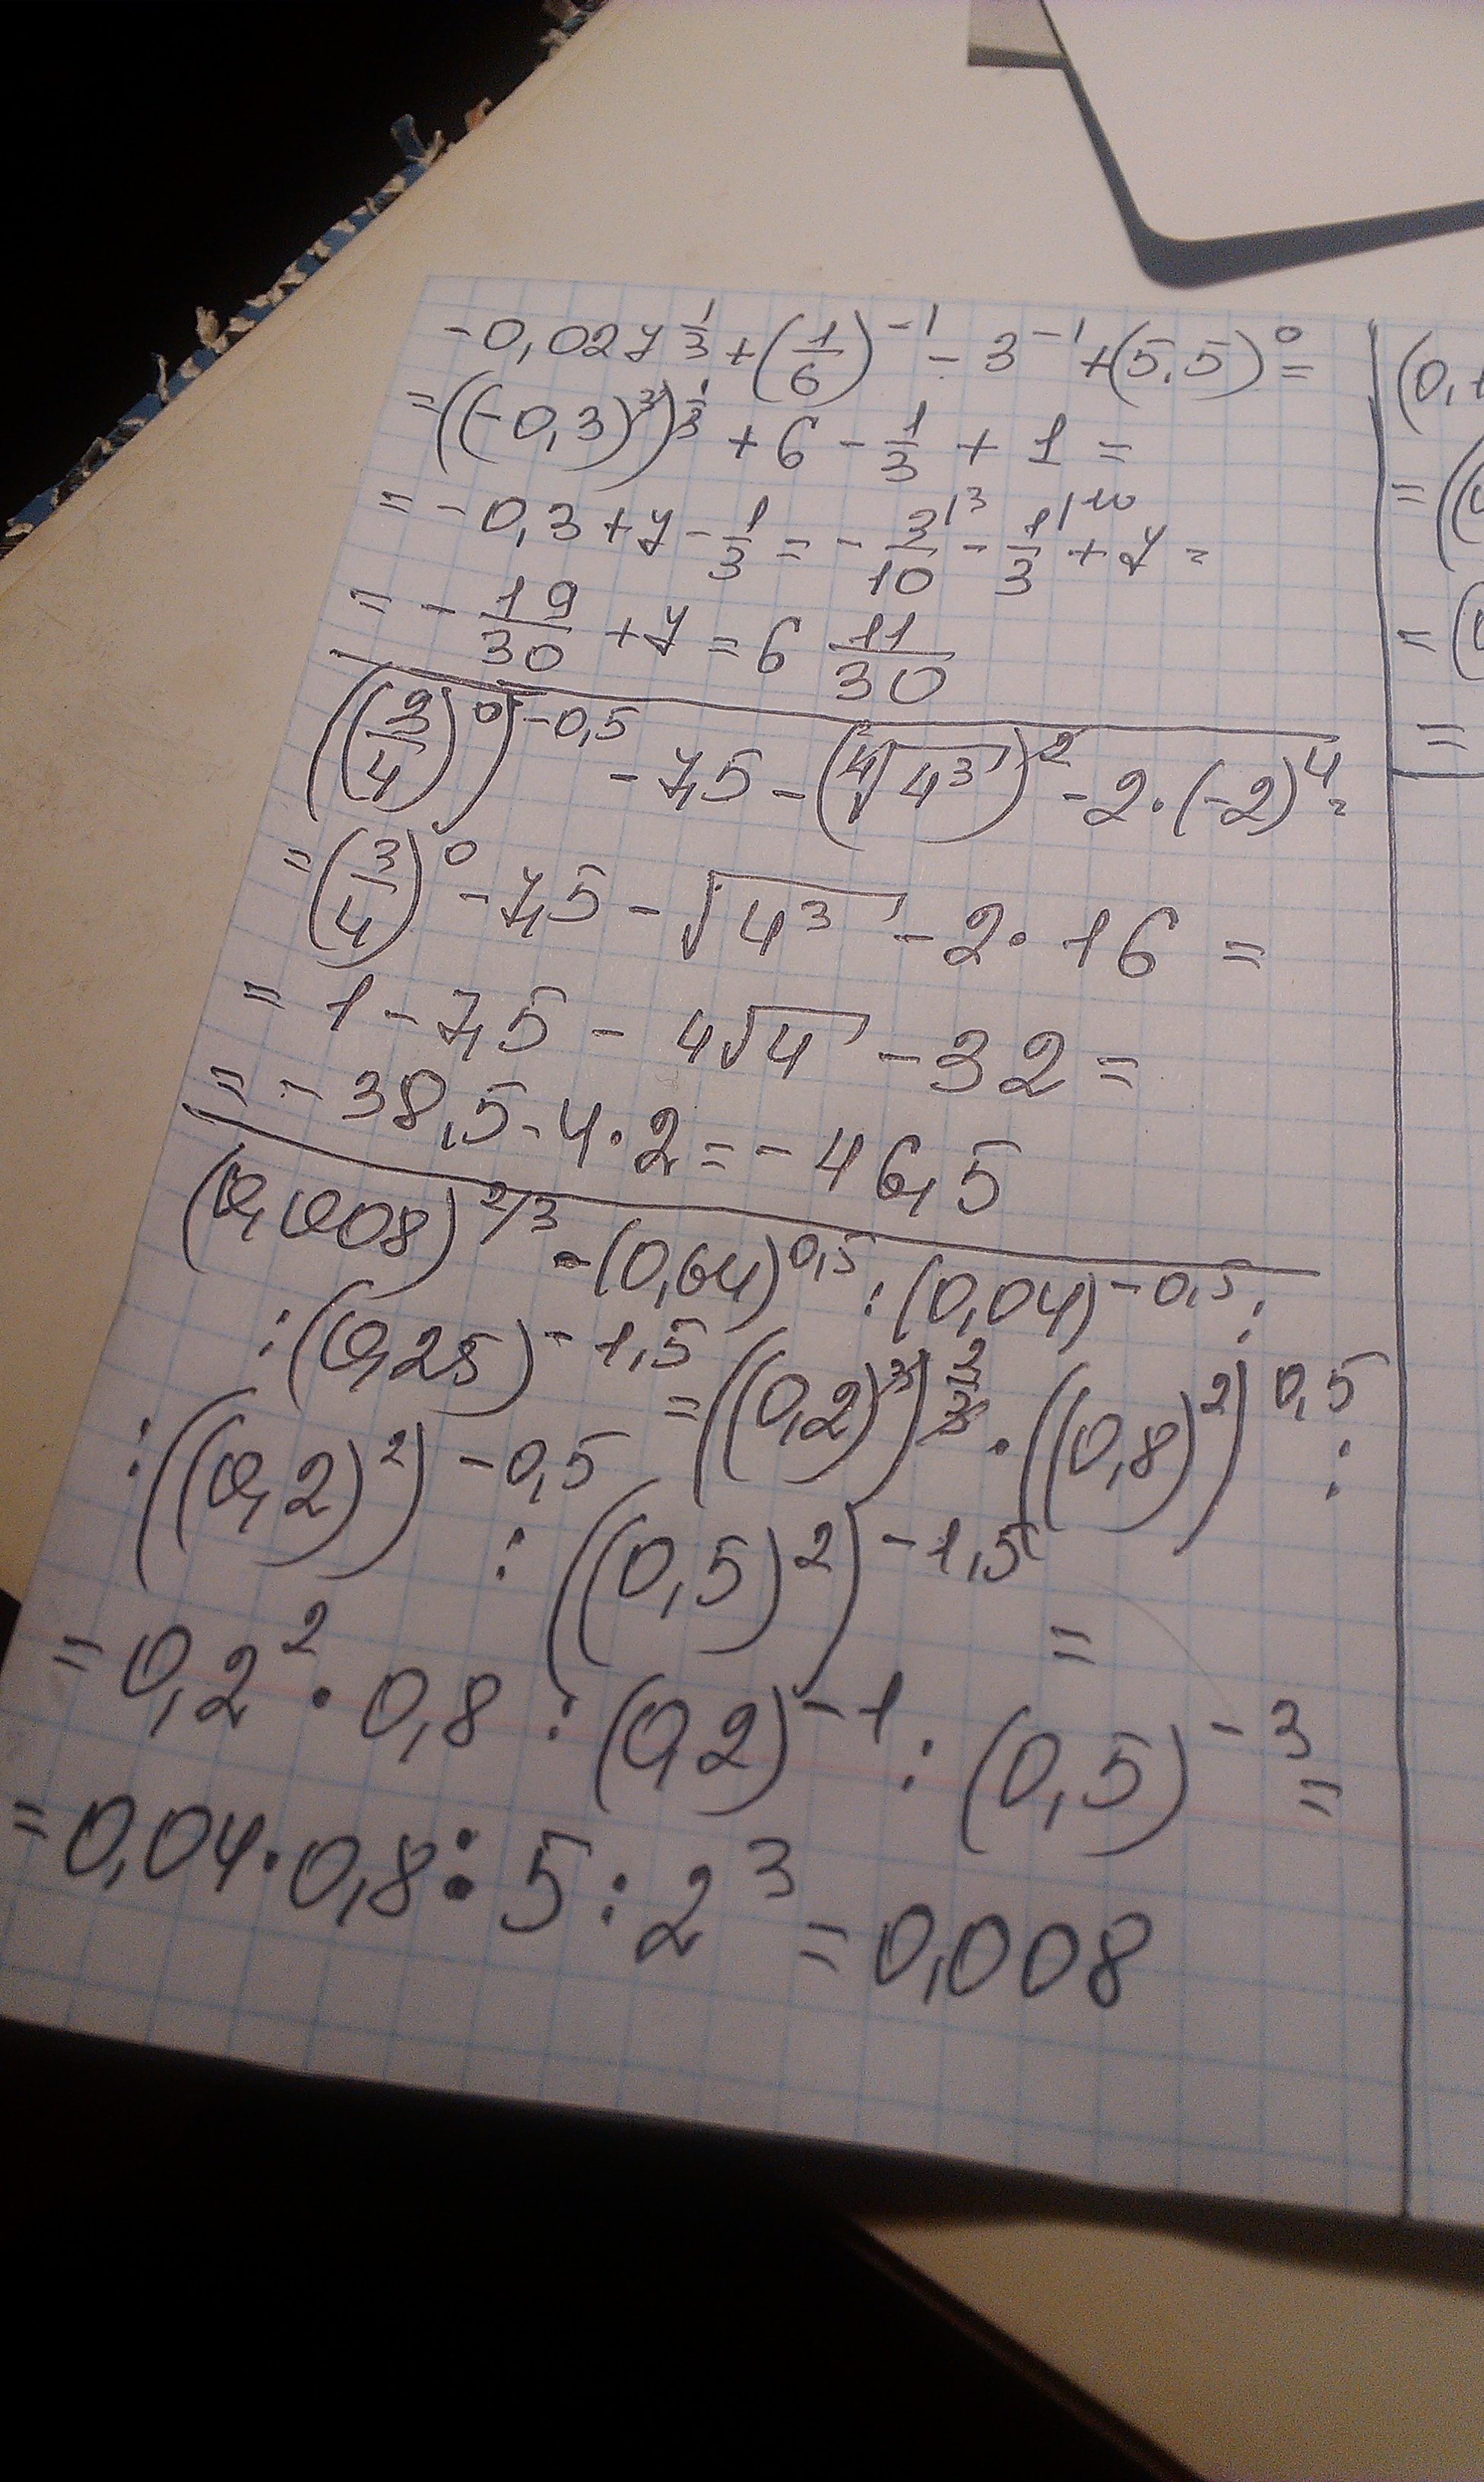 -0,027^{1/3} + (1/6)^{-1} - 3^{-1} + (5.5)^0 =
= ((-0,3)^3)^{1/3} + 6 - 1/3 + 1 =
= -0,3 + 7 - 1/3 = - 3|3/10 - 1|10/3 + 7 =
= - 19/30 + 7 = 6 11/30
((3/4)^0)^{-0,5} - 7,5 - (⁴√4³)² - 2·(-2)^4 =
= (3/4)^0 - 7,5 - √4³ - 2·16 =
= 1 - 7,5 - 4√4 - 32 =
= - 38,5 - 4·2 = - 46,5
(0,008)^{2/3} - (0,64)^{0,5} : (0,04)^{-0,5} :
: (0,25)^{-1,5} = ((0,2)^3)^{2/3} · ((0,8)^2)^{0,5} :
: ((0,2)^2)^{-0,5} : ((0,5)^2)^{-1,5} =
= 0,2^2 · 0,8 : (0,2)^{-1} : (0,5)^{-3} =
= 0,04 · 0,8 : 5 : 2^3 = 0,008
(0,
= ((
= (
=